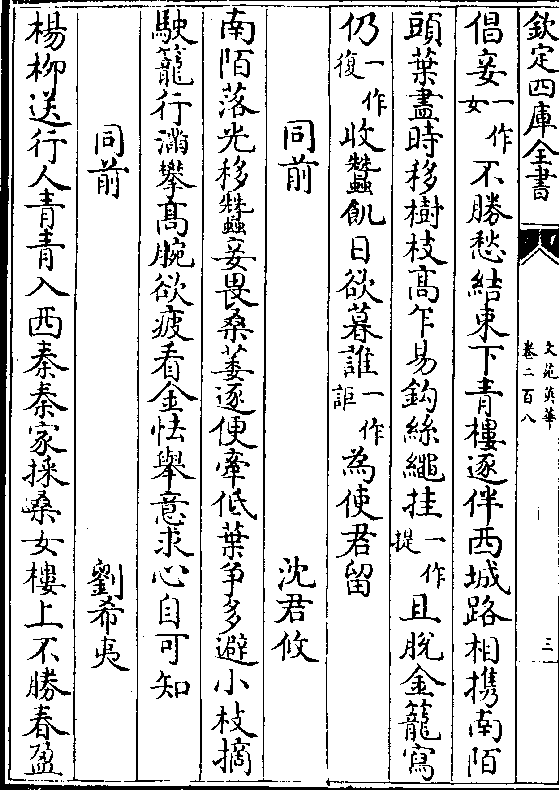 欽定四庫全書
文苑英華
卷二百八
三
倡妾一作女不勝愁結束下青樓逐伴西城路相攜南陌
頭葉盡時移樹枝高乍易鈎絲繩挂一作提且脫金籠寫
仍一作復收蠶飢日欲暮誰一作詎為使君留
同前 沈君攸
南陌落光移蠶妾畏桑萎逐便牽低葉争多避小枝摘
駛籠行滿攀高腕欲疲看金怯舉意求心自可知
同前 劉希夷
楊柳送行人青青入西秦秦家採桑女樓上不勝春盈